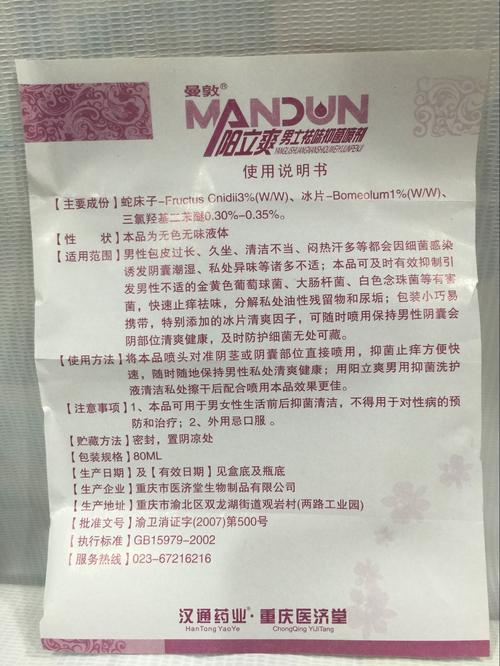 曼敦®
MANDUN
阳立爽 男士祛味抑菌喷剂
YANGLISHUANGNANSHIQUWEIYIJUNPENJI
使用说明书
【主要成份】蛇床子-Fructus Cnidii3%(W/W)、冰片-Borneolum1%(W/W)、
三氯羟基二苯醚0.30%-0.35%。
【性 状】本品为无色无味液体
【适用范围】男性包皮过长、久坐、清洁不当、闷热汗多等都会因细菌感染
诱发阴囊潮湿、私处异味等诸多不适；本品可及时有效抑制引
发男性不适的金黄色葡萄球菌、大肠杆菌、白色念珠菌等有害
菌，快速止痒祛味，分解私处油性残留物和尿垢；包装小巧易
携带，特别添加的冰片清爽因子，可随时喷用保持男性阴囊会
阴部位清爽健康，及时防护细菌无处可藏。
【使用方法】将本品喷头对准阴茎或阴囊部位直接喷用，抑菌止痒方便快
速，随时随地保持男性私处清爽健康；用阳立爽男用抑菌洗护
液清洁私处擦干后配合喷用本品效果更佳。
【注意事项】1、本品可用于男女性生活前后抑菌清洁，不得用于对性病的预
防和治疗；2、外用忌口服 。
【贮藏方法】密封，置阴凉处
【包装规格】80ML
【生产日期】及【有效日期】见盒底及瓶底
【生产企业】重庆市医济堂生物制品有限公司
【生产地址】重庆市渝北区双龙湖街道观岩村(两路工业园)
【批准文号】渝卫消证字(2007)第500号
【执行标准】GB15979-2002
【服务热线】023-67216216
汉通药业·重庆医济堂
HanTong YaoYe ChongQing YiJiTang